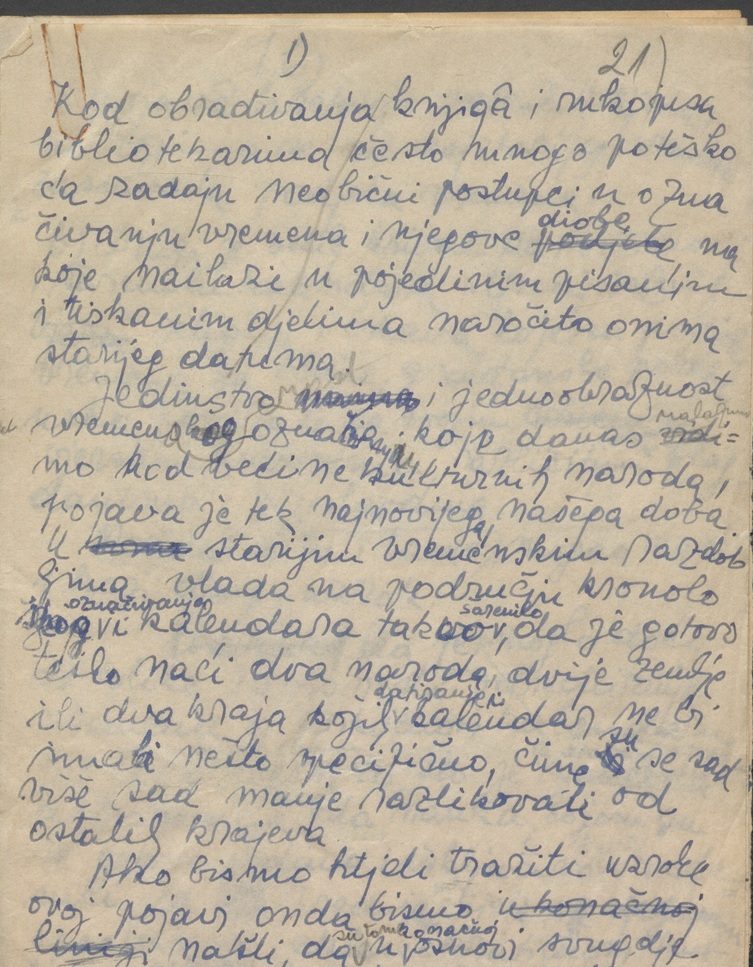 1) 21)
Kod obrađivanja knjigâ i rukopisa
bibliotekarima često mnogo poteško
ća zadaju neobični postupci u ozna
čivanju vremena i njegove podjele na
diobe
koje nailazi u pojedinim pisanim
i tiskanim djelima naročito onima
starijeg datuma.
Jedinstvo i jednoobraznost
vremenskog označivanja, koje danas
nalazimo
mo kod većine kulturnih naroda,
pojava je tek najnovijega našega doba
U starijim vremenskim razdob
ljima vlada na području kronolo
označivanja šarenilo
kalendara da je gotovo
teško naći dva naroda, dvije zemlje
datiranje i
ili dva kraja kojih kalendar ne bi
su
imali nešto specifično, čime se sad
više sad manje razlikovali od
ostalih krajeva
Ako bismo htjeli tražiti uzroke
ovoj pojavi onda bismo u konačnoj
konačnoj
liniji našli, da u osnovi svugdje